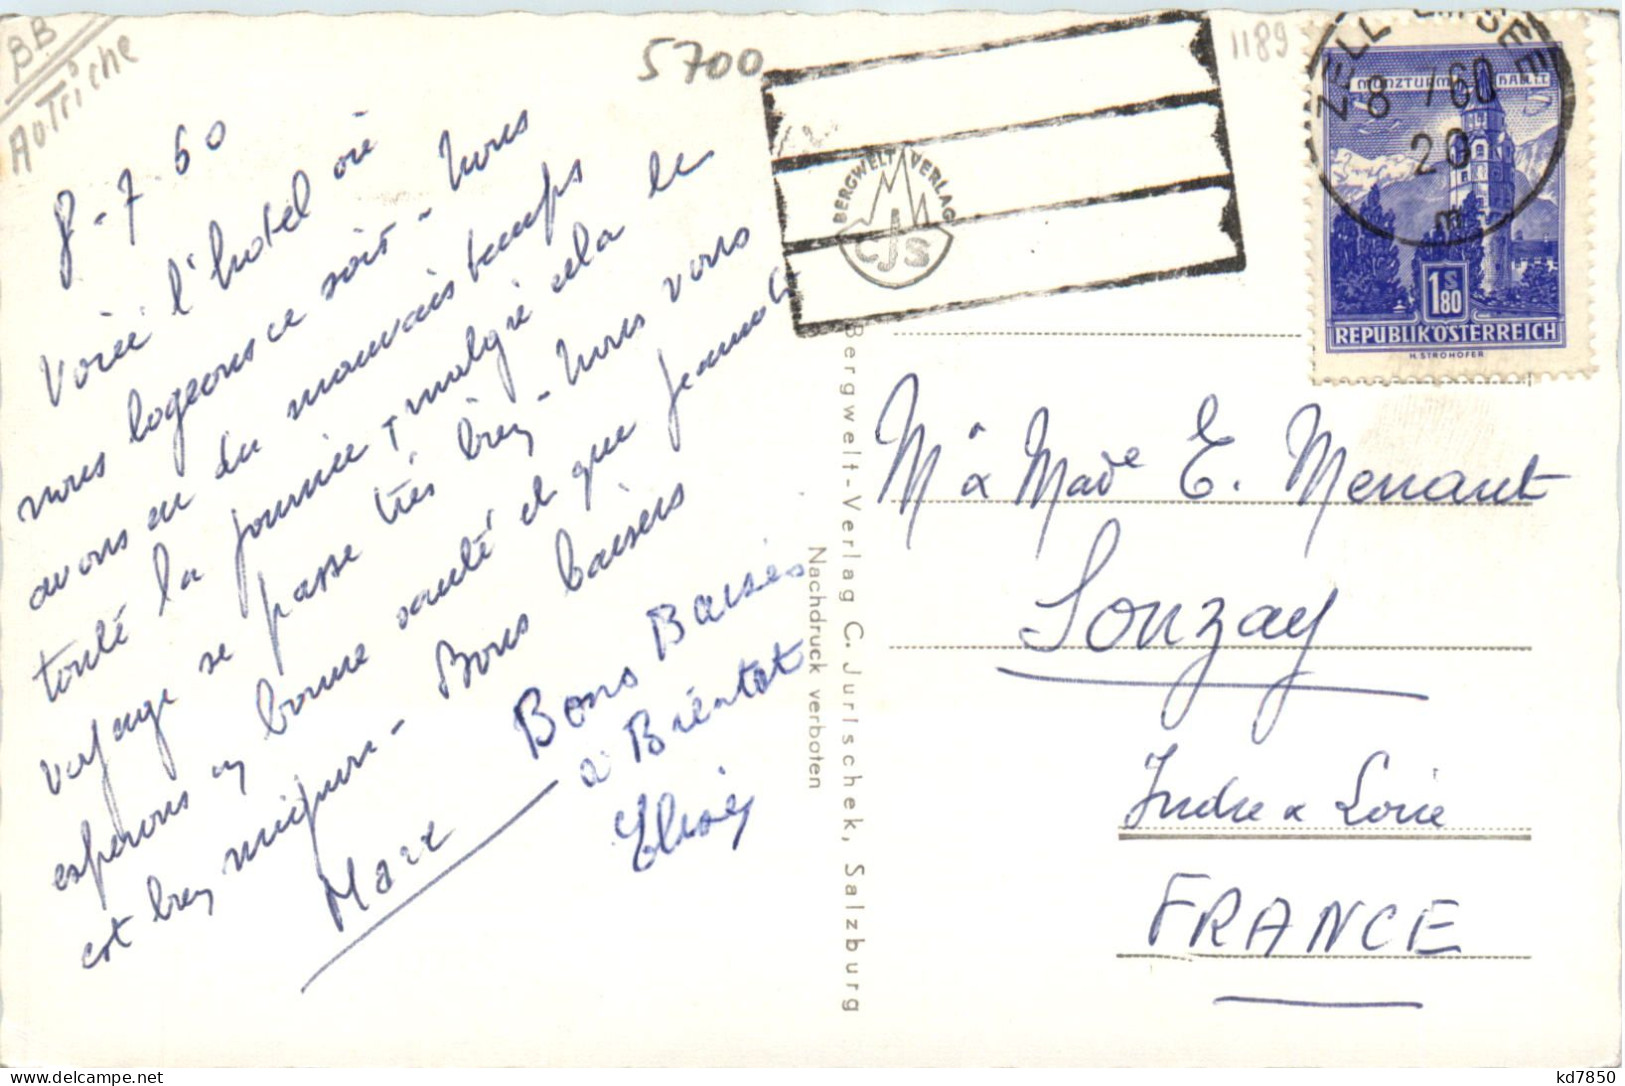 BB
Autriche
5700
1189
8-7-60
Voici l'hotel où
nous logeons ce soir - Nous
avons eu du mauvais temps
toute la journée + malgré cela le
voyage se passe très bien - Nous vous
espérons en bonne santé et que
est bien mignon - Bons baisers
Marc
Bons Baisés
à Bientot
BERGWELT VERLAG
CJS
ZELL AM SEE
8 /60
20
m
MÜNZTURM HALL I.T.
1S80
REPUBLIK ÖSTERREICH
H. STROHOFER
Bergwelt-Verlag C. Jurischek, Salzburg
Nachdruck verboten
Mr & Made E. Menant
Sonzay
Indre & Loire
FRANCE
kd7850